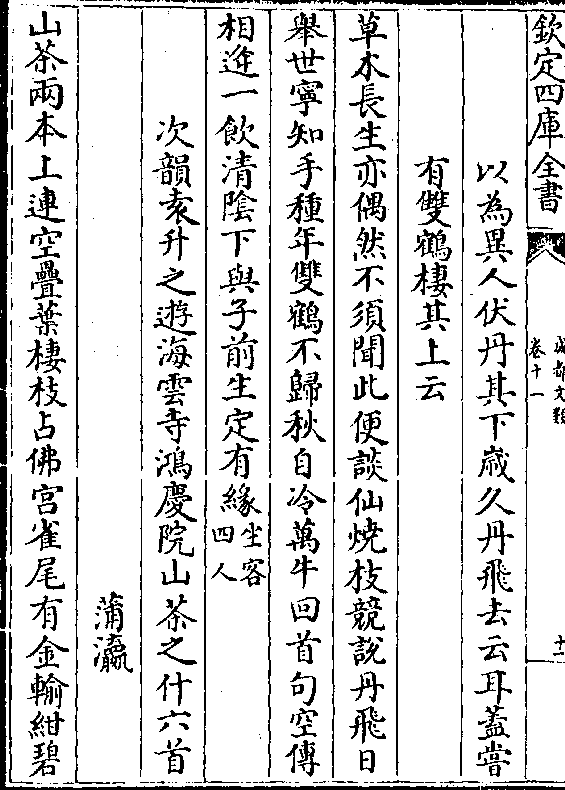 欽定四庫全書
成都文類
卷十一
十二
以為異人伏丹其下嵗久丹飛去云耳蓋嘗
有雙鶴棲其上云
草木長生亦偶然不須聞此便談仙燒枝競說丹飛日
舉世寧知手種年雙鶴不歸秋自冷萬牛回首句空傳
相逢一飲清隂下與子前生定有緣坐客四人
次韻袁升之遊海雲寺鴻慶院山茶之什六首
蒲瀛
山茶兩本上連空疊葉棲枝占佛宮雀尾有金輸紺碧